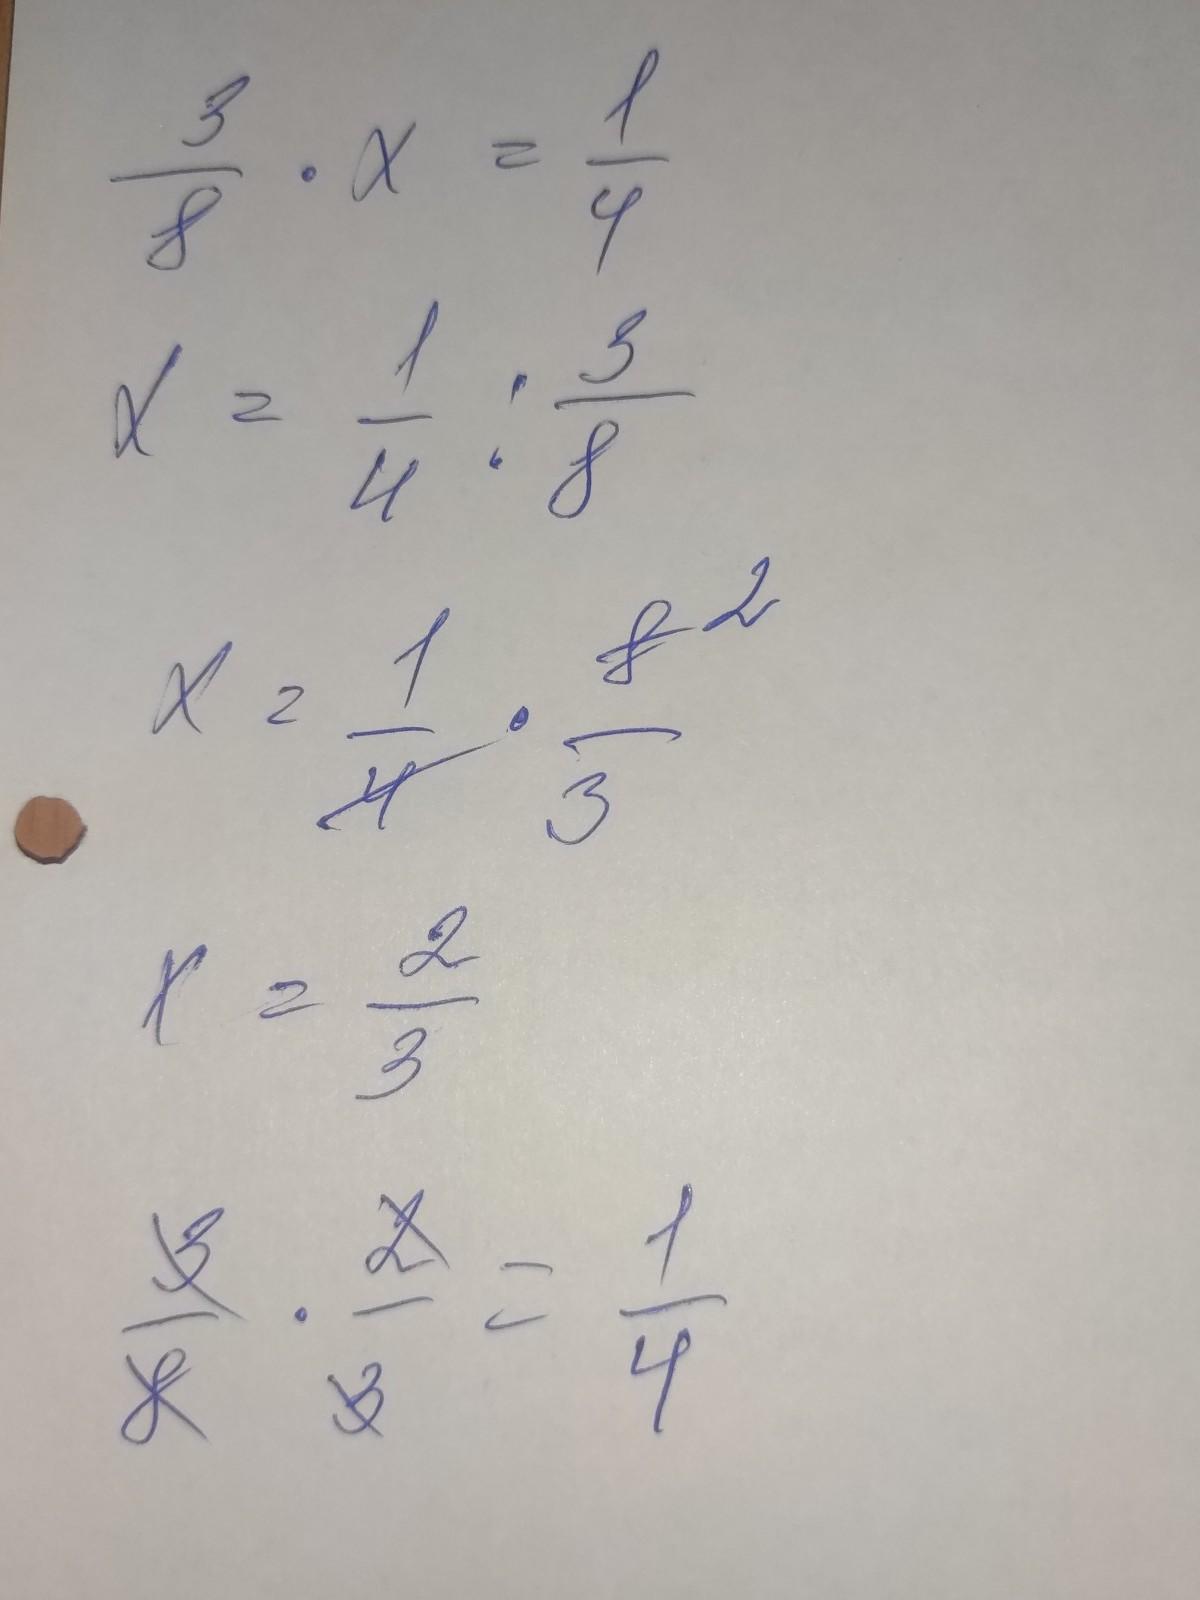 3/8 · x = 1/4
x = 1/4 : 3/8
x = 1/4 · 8/3 2
x = 2/3
3/8 · 2/3 = 1/4